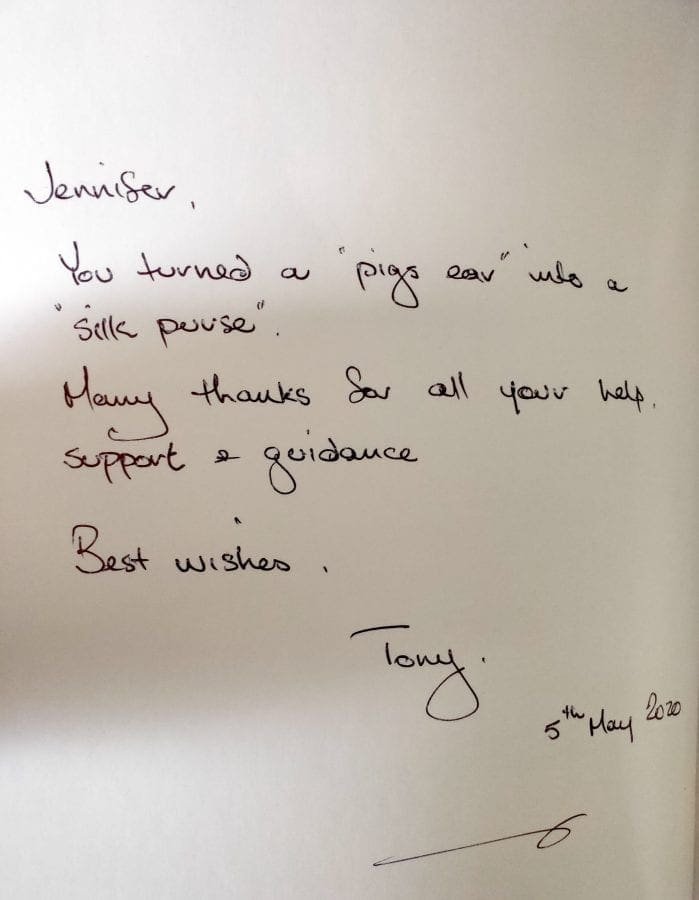 Jennifer,
You turned a "pigs ear" into a
"silk purse".
Many thanks for all your help,
support & guidance
Best wishes.
Tony.
5th May 2020